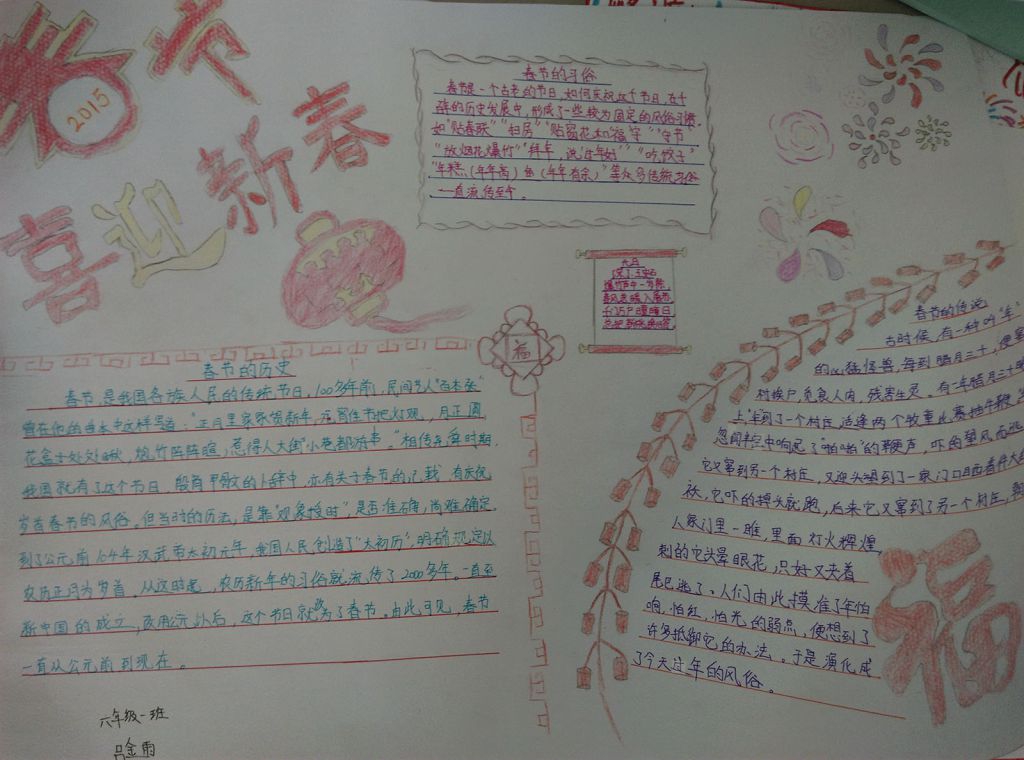 春节
2015
喜迎新春
春节的习俗
春节是一个古老的节日,如何庆祝这个节日,在千
的历史发展中,形成了一些较为固定的风俗习惯,
如"贴春联""扫房""贴窗花和"福"字""守
"放烟花爆竹""拜年,说'过年好'""吃饺子"
年糕(年年高)鱼(年年有余)"等众多传统习俗
一直流传至今。
元日
爆竹声中一岁除,
春风送暖入屠苏
千门万户曈曈日
总把新桃换旧符
福
春节的历史
春节,是我国各族人民的传统节日,100多年前,民间艺人"百本张"
曾在他的唱本中这样写道:"正月里家家贺新年,元宵佳节把灯观,月正圆
花盒子处处瞅,炮竹阵阵喧,惹得人大街小巷都游串。"相传尧舜时期,
我国就有了这个节日,殷商甲骨文的卜辞中,亦有关于春节的记载,有庆祝
岁首春节的风俗,但当时的历法,是靠"观象授时",是否准确,尚难确定,
到了公元前104年汉武帝太初元年,我国人民创造了"太初历",明确规定以
农历正月为岁首,从这时起,农历新年的习俗就流传了2000多年。一直至
新中国的成立,改用公元以后,这个节日就改为了春节。由此可见,春节
一直从公元前到现在。
六年级一班
吕金雨
春节的传说
古时候,有一种叫"年"
的凶猛怪兽,每到腊月三十,便窜
村挨户,觅食人肉,残害生灵。有一年腊月三十晚
上,"年"到了一个村庄,适逢两个牧童比赛抽牛鞭
忽闻半空中响起了"啪啪"的鞭声,吓的望风而逃
它又窜到另一个村庄,又迎头望到了一家门口晒着件大红
袄,它吓的掉头就跑,后来它又窜到了另一个村庄,
人家门里一瞧,里面灯火辉煌,
刺的它头晕眼花,只好又夹着
尾巴逃了。人们由此摸准了年怕
响,怕红,怕光的弱点,便想到了
许多抵御它的办法。于是演化成
了今天过年的风俗。
福